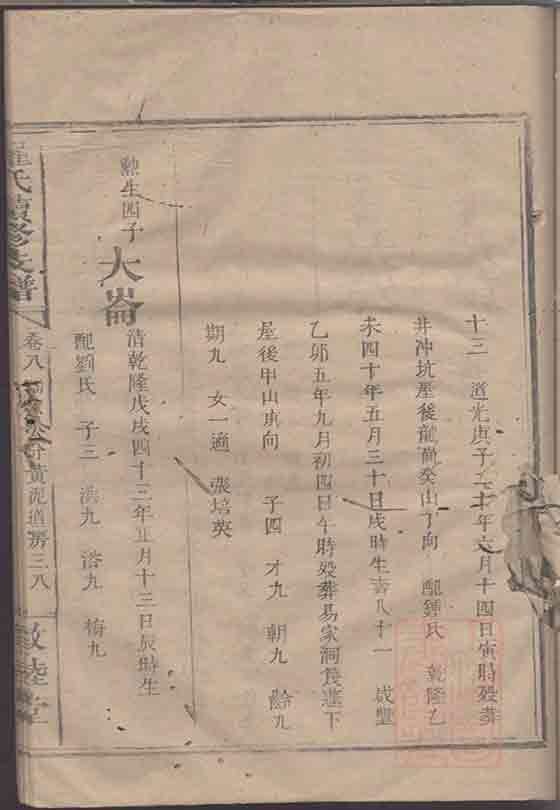 十三 道光庚子二十年六月十四日寅時歿葬
井冲坑屋後龍崗癸山丁向 配鍾氏 乾隆乙
未四十年五月三十日戌時生壽八十一 咸豐
乙卯五年九月初四日午時歿葬易家洞 下
屋後甲山庚向 子四 才九 朝九 齡九
期九 女一適 張培英
勲生四子 大崙
清乾隆戊戌四十三年五月十三日辰時生
配劉氏 子三 九 浩九 梅九
氏續修支譜 卷八 公分黃泥道房三八 敦睦堂